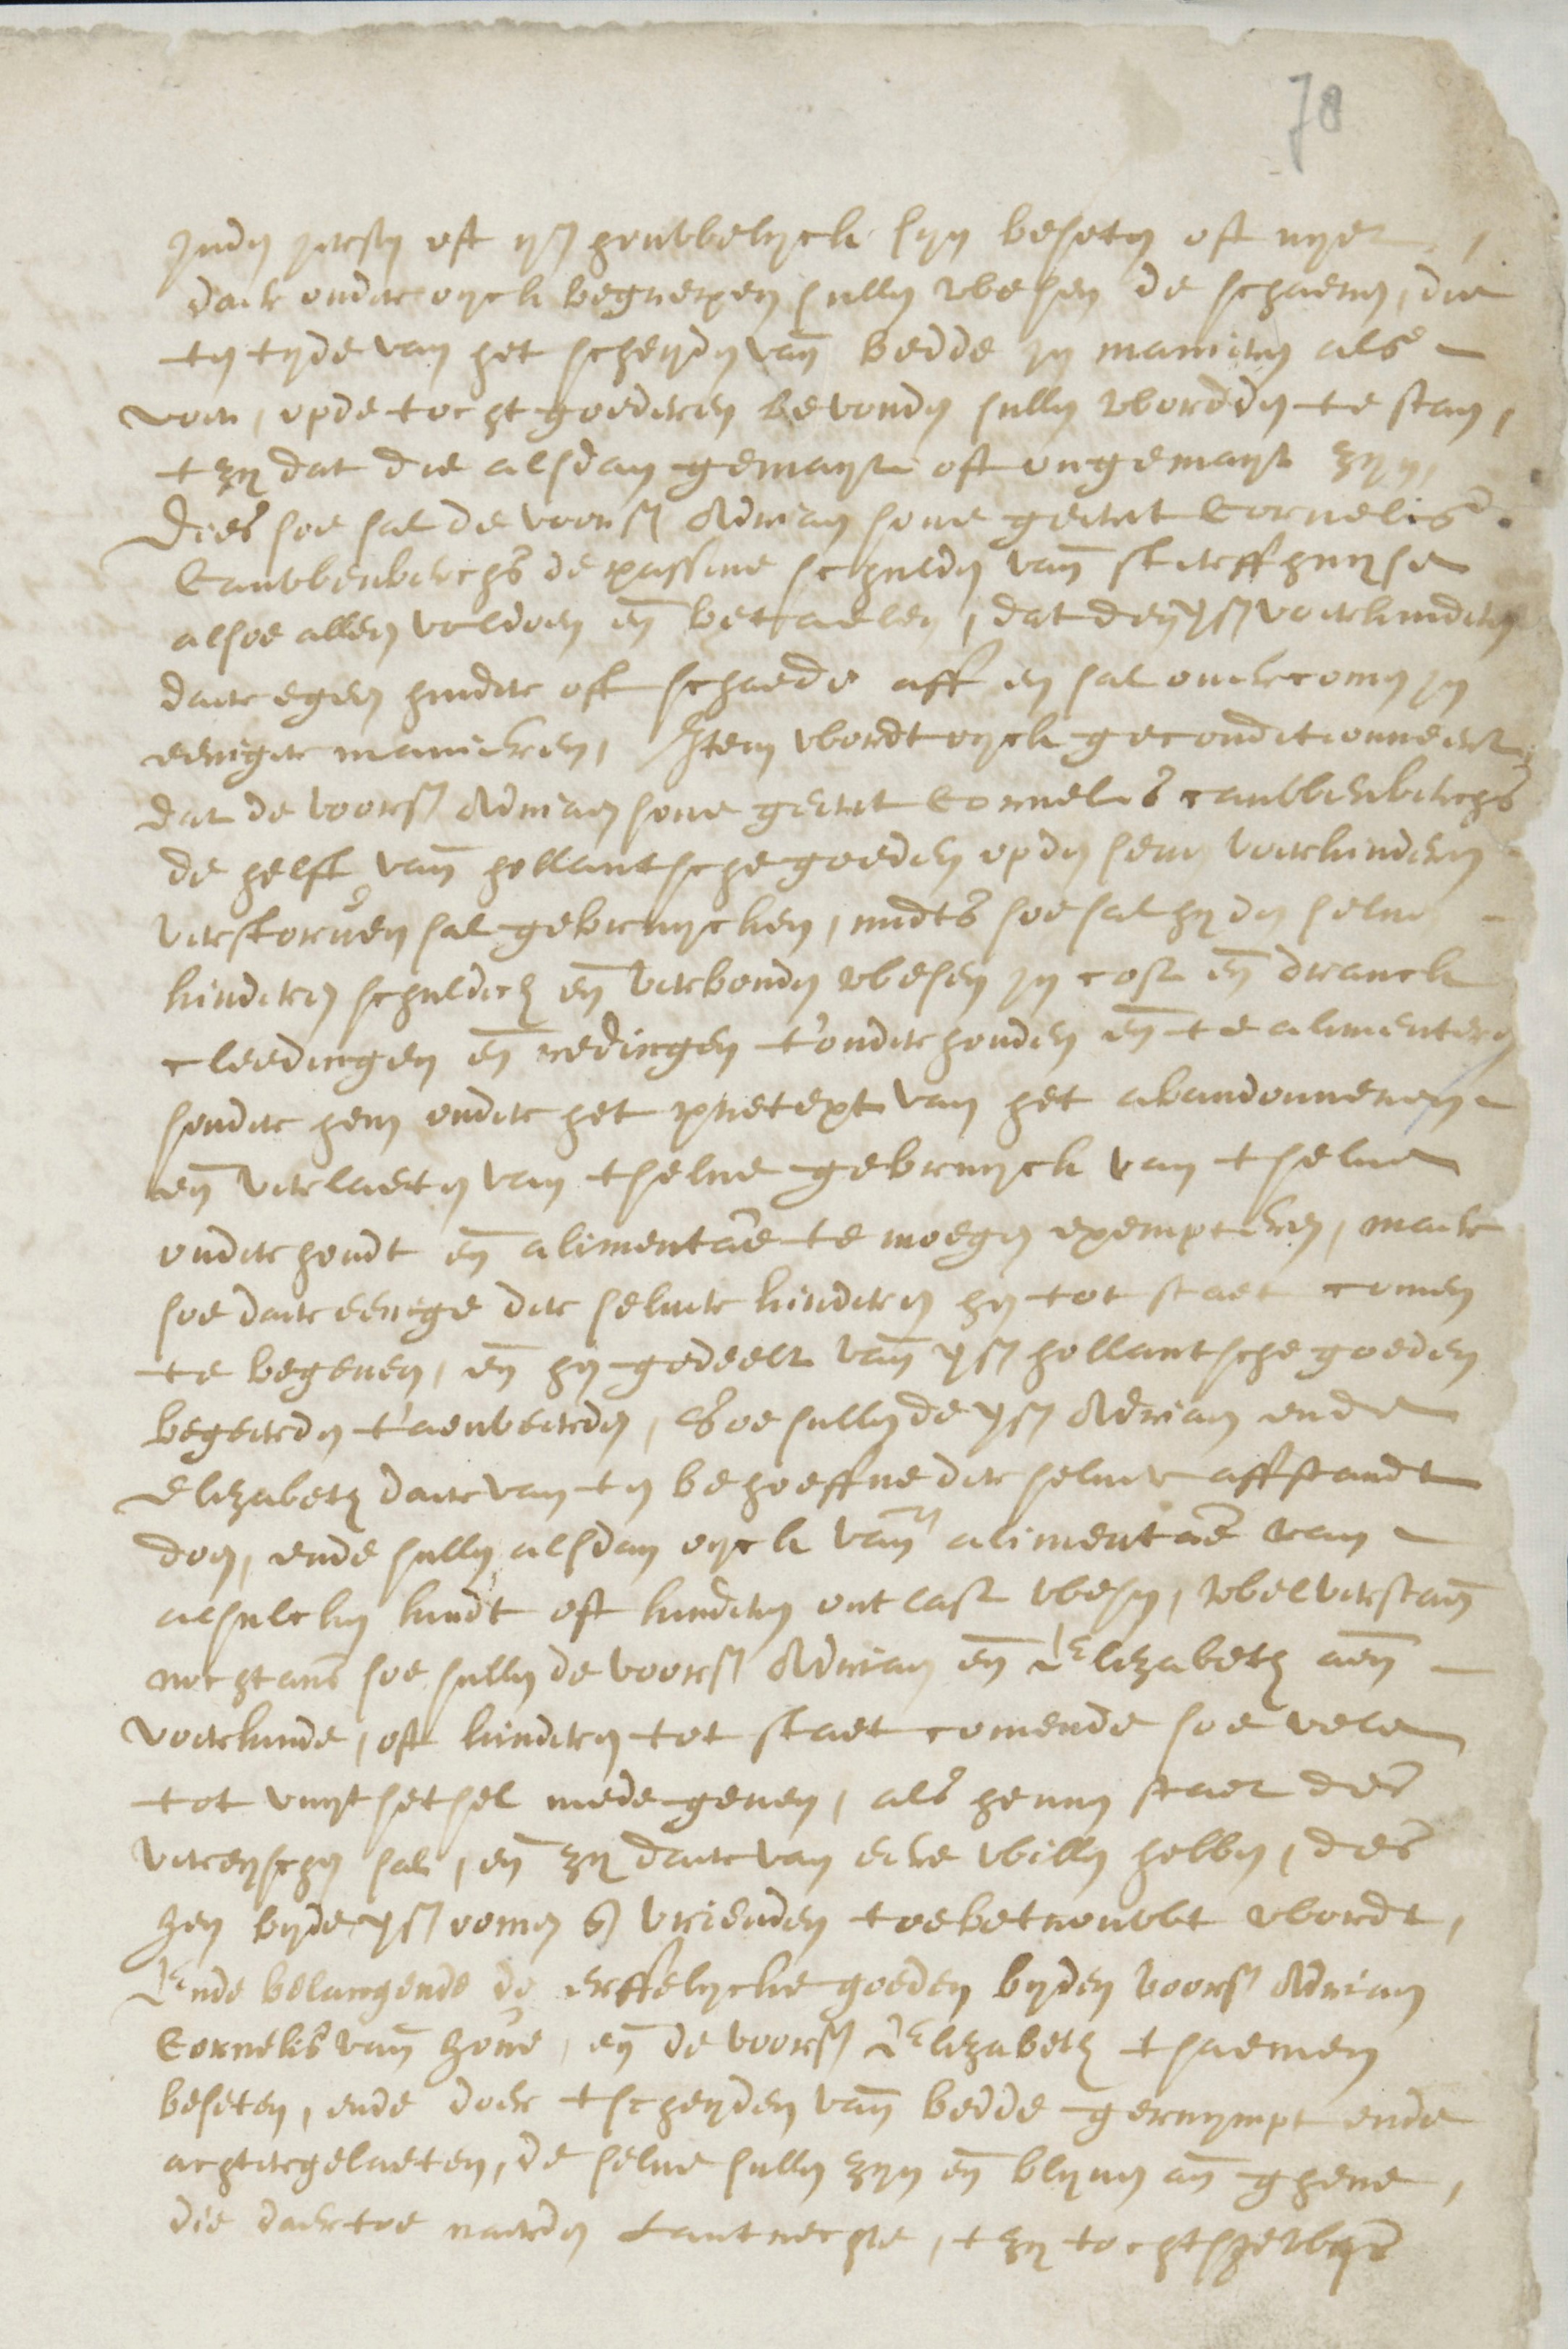 70
inden iersten oft yst houwelyck syn beseten oft nyet,
daer onder oyck begrepen sullen wesen de schaeren, die
ten tyde van het scheyden vann bedde in manieren als
voer, opde tochtgoederen bevonden sullen wordden te staen,
tzy dat die alsdan gemayt oft ongemayt zyn,
Dies soe sal de voors Adriaen sone geeret Cornelis
Cauwenberchs de passive schulden vann sterffhuyse
alsoe alleen voldoen en betaelen, dat den vs voerkinderen
daer egeen hinder oft schaede aff en sal overcomen in
eeniger manieren, Item wordt oyck geconditionneert,
dat de voors Adriaen sone geeret Cornelis cauwenberchs
de helft vann hollantsche goeden opden seven voerkinderen
verstorven sal gebruycken, midts soe sal hy den selve
kinderen schuldich en verbonden wesen in cost en dranck
cleedingen en redingen t'onderhouden en te alimenteren
sonder hem onder het pretext van het abandonneren
en verlaeten van tselve gebruyck van tselve
onderhoudt en alimentae te moegen exempteren, maer
soe daer eenige der selver kinderen hen tot staet comen
te begeven, en hen gedeelt vann vs hollantsche goeden
begeerden t'aenveerden, Soe sullen de vs Adriaen ende
Elizabeth daer van ten behoeffve der selver affstandt
doen, ende sullen alsdan oyck vann alimentae van
alsulcken kindt oft kinderen ontlast wesen, welverstaen
nochtans soe sullen de voors Adriaen en Elizabeth aen
voerkinde, oft kinderen tot staet comende soe vele
tot vuytsetsel mede geven, als hennen staet des
vereyschen sal, en zy daer van eere willen hebben, des
hen byde vs oomen en vrienden toebetrouwt wordt,
Ende belangende de erffelycke goeden byden voors Adriaen
Cornelis vann Hove, en de voors Elizabeth tsaemen
beseten, ende doer tscheyden vann bedde geruympt ende
achtergelaeten, de selve sullen zyn en blyven an ghene,
die daertoe naerden Lantrechte, tzy tochtsgewys